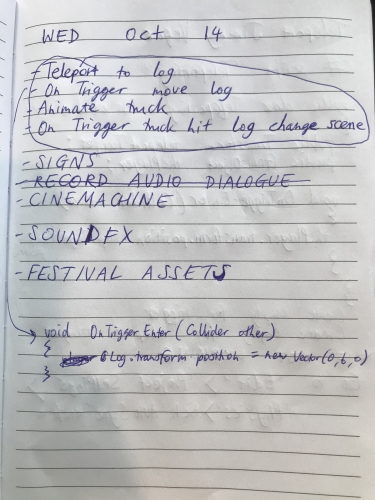 WED Oct 14
- Teleport to log
- On Trigger move log
- Animate truck
- On Trigger truck hit log change scene
- SIGNS
- RECORD AUDIO DIALOGUE
- CINEMACHINE
- SOUNDFX
- FESTIVAL ASSETS
void OnTriggerEnter (Collider other)
{
Log.transform position = new Vector(0,6,0)
}